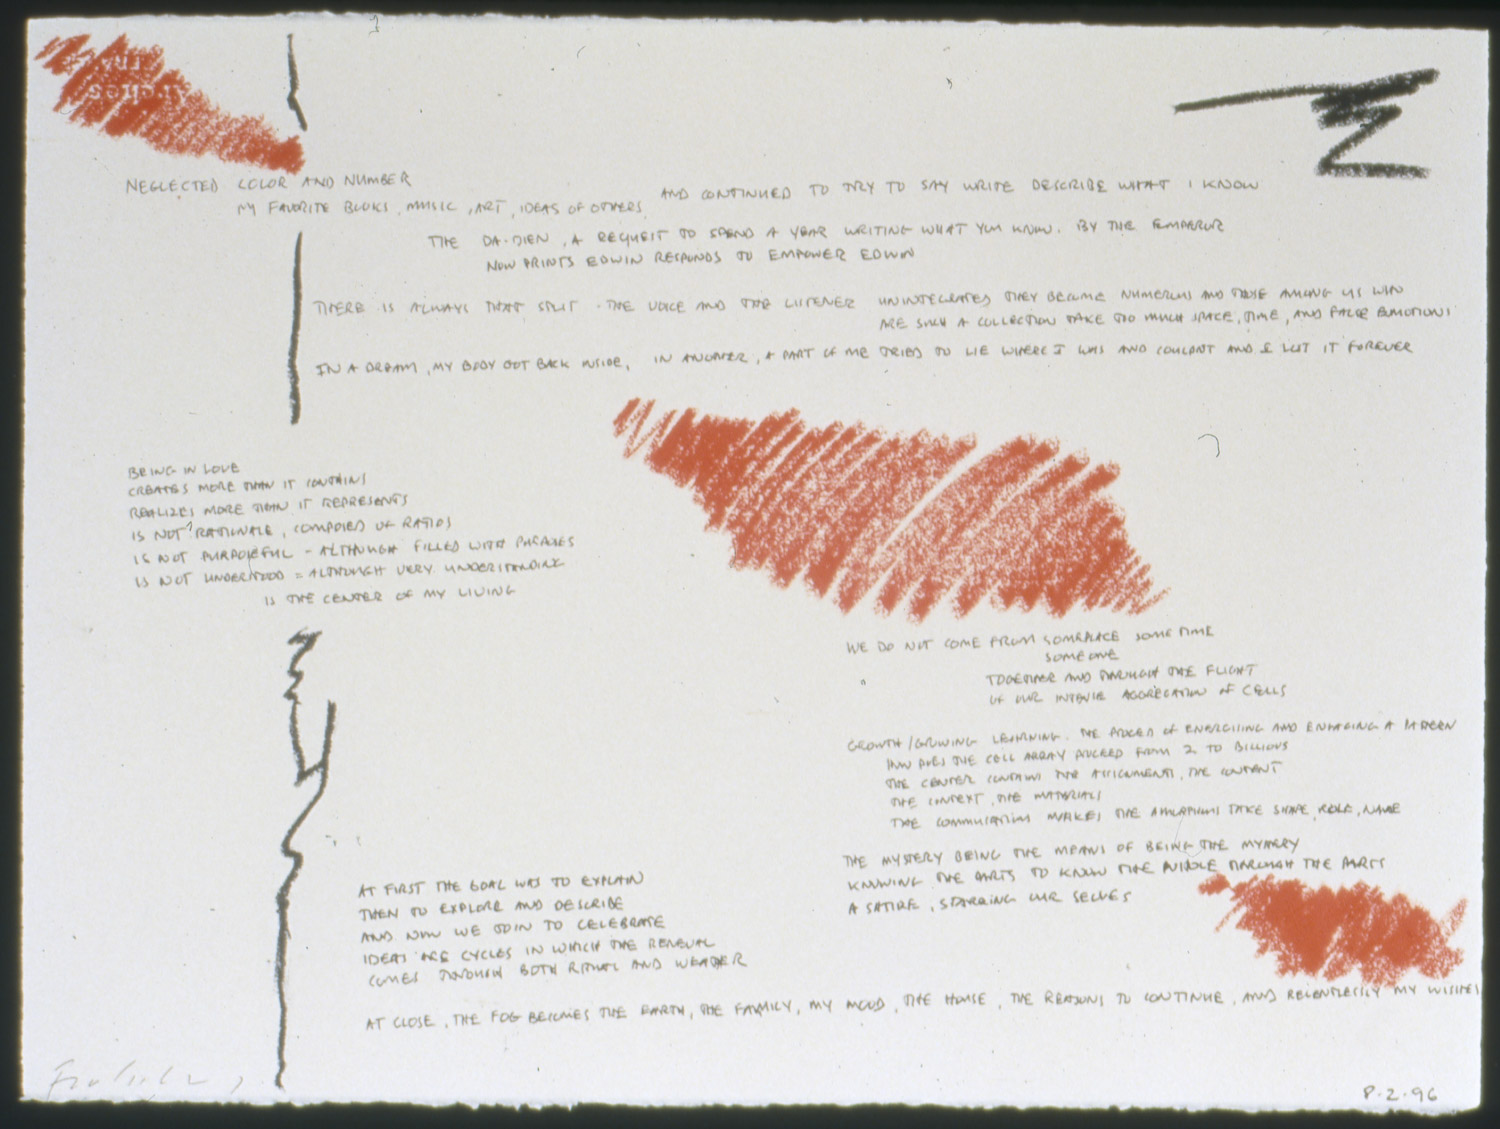 NEGLECTED COLOR AND NUMBER
MY FAVORITE BOOKS, MUSIC, ART, IDEAS OF OTHERS
AND CONTINUED TO TRY TO SAY WRITE DESCRIBE WHAT I KNOW
THE DA-DIEN, A REQUEST TO SPEND A YEAR WRITING WHAT YOU KNOW. BY THE EMPEROR
NOW PRINTS EDWIN RESPONDS TO EMPOWER EDWIN
THERE IS ALWAYS THAT SPLIT - THE VOICE AND THE LISTENER UNINTEGRATED THEY BECOME NUMEROUS AND THOSE AMONG US WHO
ARE SUCH A COLLECTION TAKE TOO MUCH SPACE, TIME, AND FALSE EMOTIONS
IN A DREAM, MY BODY GOT BACK INSIDE, IN ANOTHER, A PART OF ME TRIED TO LIE WHERE I WAS AND COULDNT AND I LOST IT FOREVER
BEING IN LOVE
CREATES MORE THAN IT CONTAINS
REALIZES MORE THAN IT REPRESENTS
IS NOT RATIONALE, COMPOSED OF RATIOS
IS NOT PURPOSEFUL - ALTHOUGH FILLED WITH PURPOSES
IS NOT UNDERSTOOD = ALTHOUGH VERY UNDERSTANDING
IS THE CENTER OF MY LIVING
WE DO NOT COME FROM SOMEPLACE SOME TIME
SOMEONE
TOGETHER AND THROUGH THE FLIGHT
OF OUR INTENSE AGGREGATION OF CELLS
GROWTH/GROWING LEARNING. THE PROCESS OF ENERGISING AND ENGAGING A PATTERN
HOW DOES THE CELL ARRAY PROCEED FROM 2 TO BILLIONS
THE CENTER CONTAINS THE ASSIGNMENTS, THE CONTENT
THE CONTEXT, THE MATERIALS
THE COMMUNICATION MAKES THE TAKE SHAPE, ROLE, NAME
THE MYSTERY BEING THE MEANS OF BEING THE MYSTERY
KNOWING THE PARTS TO KNOW THE MIDDLE THROUGH THE PARTS
A SATIRE, STARRING OUR SELVES
AT FIRST THE GOAL WAS TO EXPLAIN
THEN TO EXPLORE AND DESCRIBE
AND NOW WE JOIN TO CELEBRATE
IDEAS ARE CYCLES IN WHICH THE RENEWAL
COMES THROUGH BOTH RITUAL AND WEATHER
AT CLOSE, THE FOG BECOMES THE EARTH, THE FAMILY, MY MOOD, THE HOUSE, THE REASONS TO CONTINUE, AND RELENTLESSLY MY WISHES
8.2.96